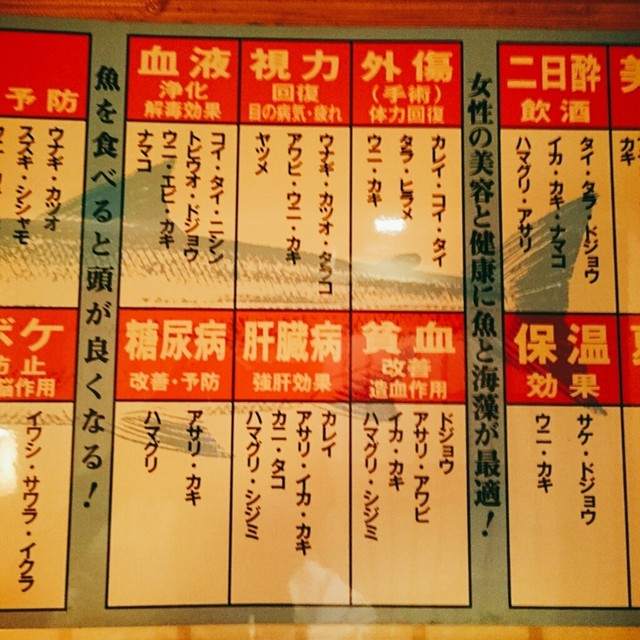 予防
ウナギ・カツオ
スズキ・シシャモ
ボケ
防止
脳作用
イワシ・サワラ・イクラ
魚を食べると頭が良くなる!
血液
浄化
解毒効果
コイ・タイ・ニシン
トビウオ・ドジョウ
ウニ・エビ・カキ
ナマコ
視力
回復
目の病気・疲れ
ウナギ・カツオ・タラコ
アワビ・ウニ・カキ
ヤツメ
外傷
(手術)
体力回復
カレイ・コイ・タイ
タラ・ヒラメ
ウニ・カキ
糖尿病
改善・予防
アサリ・カキ
ハマグリ
肝臓病
強肝効果
カレイ
アサリ・イカ・カキ
カニ・タコ
ハマグリ・シジミ
貧血
改善
造血作用
ドジョウ
アサリ・アワビ
イカ・カキ
ハマグリ・シジミ
女性の美容と健康に魚と海藻が最適!
二日酔
飲酒
タイ・タラ・ドジョウ
イカ・カキ・ナマコ
ハマグリ・アサリ
保温
効果
サケ・ドジョウ
ウニ・カキ
美
カキ